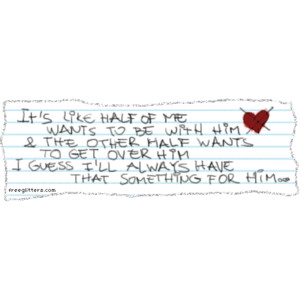 It's like half of me
wants to be with him
& the other half wants
to get over him
I guess I'll always have
that something for him...
freeglitters.com